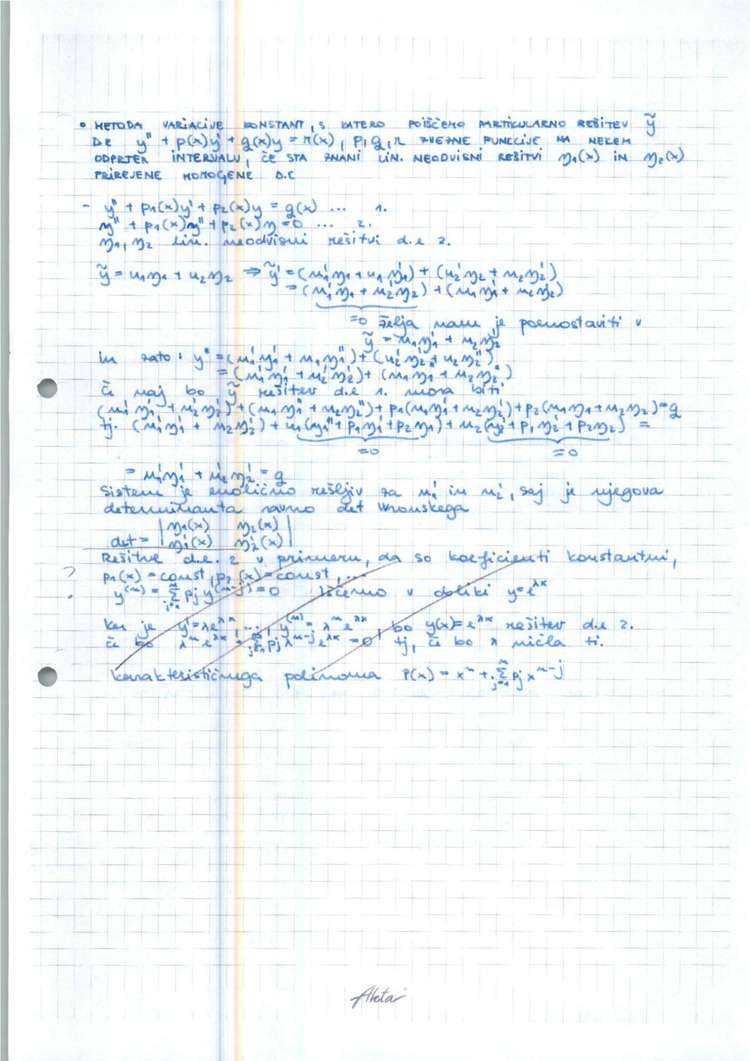 • METODA VARIACIJE KONSTANT, S KATERO POIŠČEMO PARTIKULARNO REŠITEV ỹ
D.E y'' + p(x)y' + q(x)y = r(x), p, q, r ZVEZNE FUNKCIJE NA NEKEM
ODPRTEM INTERVALU, ČE STA ZNANI LIN. NEODVISNI REŠITVI η₁(x) IN η₂(x)
PRIREJENE HOMOGENE D.E
- y'' + p₁(x)y' + p₂(x)y = g(x) ... 1.
η'' + p₁(x)η' + p₂(x)η = 0 ... 2.
η₁, η₂ lin. neodvisni rešitvi d.e 2.
ỹ = u₁η₁ + u₂η₂ ⇒ ỹ' = (u₁'η₁ + u₁η₁') + (u₂'η₂ + u₂η₂')
= (u₁'η₁ + u₂'η₂) + (u₁η₁' + u₂η₂')
=0 želja nam je poenostaviti v
ỹ' = u₁η₁' + u₂η₂'
in zato: y'' = (u₁'η₁' + u₁η₁'') + (u₂'η₂' + u₂η₂'')
= (u₁'η₁' + u₂'η₂') + (u₁η₁'' + u₂η₂'')
Če naj bo ỹ rešitev d.e 1. mora biti
(u₁'η₁' + u₂'η₂') + (u₁η₁'' + u₂η₂'') + p₁(u₁η₁' + u₂η₂') + p₂(u₁η₁ + u₂η₂) = g
tj. (u₁'η₁' + u₂'η₂') + u₁(η₁'' + p₁η₁' + p₂η₁) + u₂(η₂'' + p₁η₂' + p₂η₂) =
=0 =0
= u₁'η₁' + u₂'η₂' = g
Sistem je enolično rešljiv za u₁' in u₂', saj je njegova
determinanta ravno det Wronskega
det = | η₁(x) η₂(x) |
| η₁'(x) η₂'(x) |
Rešitve d.e. 2 v primeru, da so koeficienti konstantni,
? p₁(x) = const, p₂(x) = const, ...
y⁽ⁿ⁾ = Σⁿⱼ₌₁ pⱼ y⁽ⁿ⁻ʲ⁾ = 0 iščemo v obliki y = e^λx
Ker je y' = λe^λx, ..., y⁽ⁿ⁾ = λⁿe^λx, bo y(x) = e^λx rešitev d.e 2.
če bo λⁿe^λx + Σⁿⱼ₌₁ pⱼ λⁿ⁻ʲ e^λx = 0, tj, če bo λ ničla ti.
karakterističnega polinoma P(x) = xⁿ + Σⁿⱼ₌₁ pⱼ xⁿ⁻ʲ